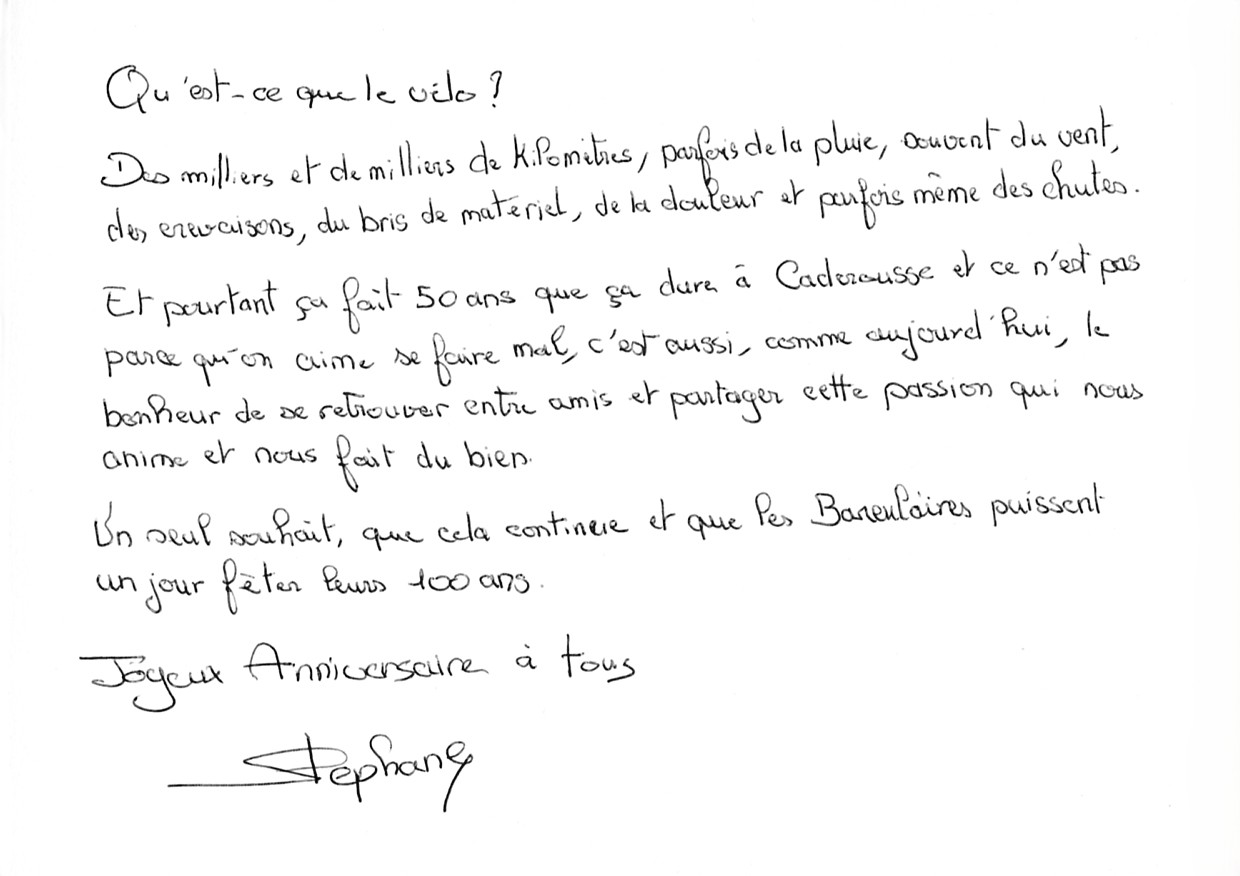 Qu'est-ce que le vélo ?
Des milliers et de milliers de kilomètres, parfois de la pluie, souvent du vent,
des crevaisons, du bris de matériel, de la douleur et parfois même des chutes.
Et pourtant ça fait 50 ans que ça dure à Caderousse et ce n'est pas
parce qu'on aime se faire mal, c'est aussi, comme aujourd'hui, le
bonheur de se retrouver entre amis et partager cette passion qui nous
anime et nous fait du bien.
Un seul souhait, que cela continue et que les Barculaires puissent
un jour fêter leurs 100 ans.
Joyeux Anniversaire à tous
Stephane